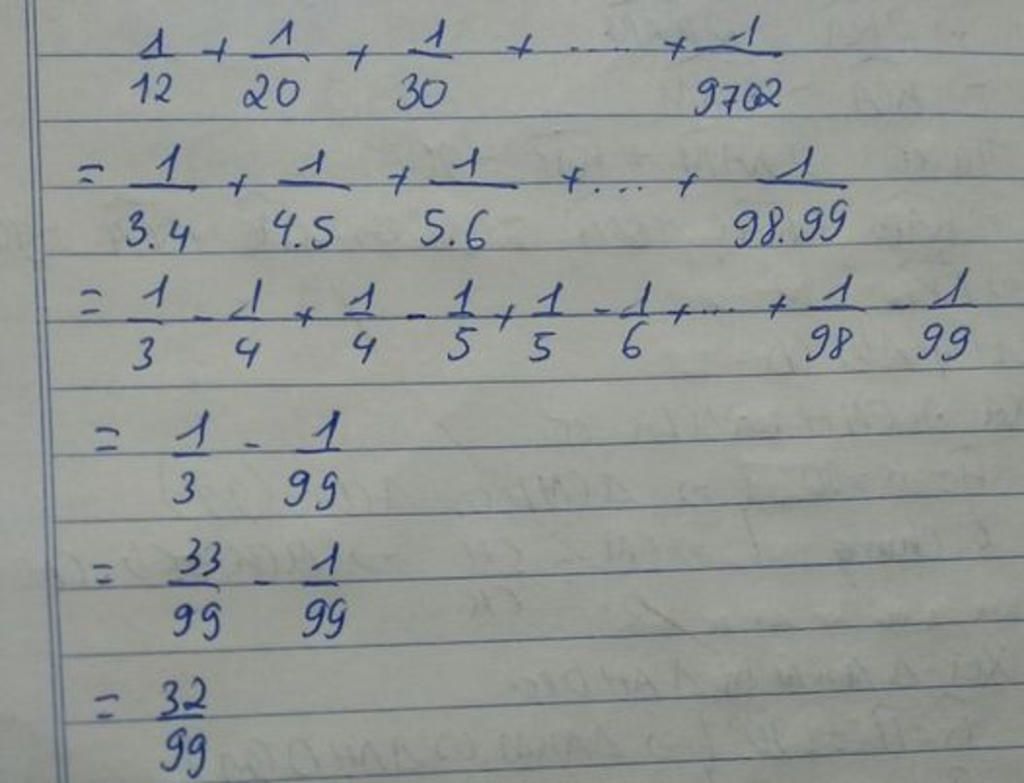 1/12 + 1/20 + 1/30 + ..... + 1/9702
= 1/3.4 + 1/4.5 + 1/5.6 + ... + 1/98.99
= 1/3 - 1/4 + 1/4 - 1/5 + 1/5 - 1/6 + ... + 1/98 - 1/99
= 1/3 - 1/99
= 33/99 - 1/99
= 32/99